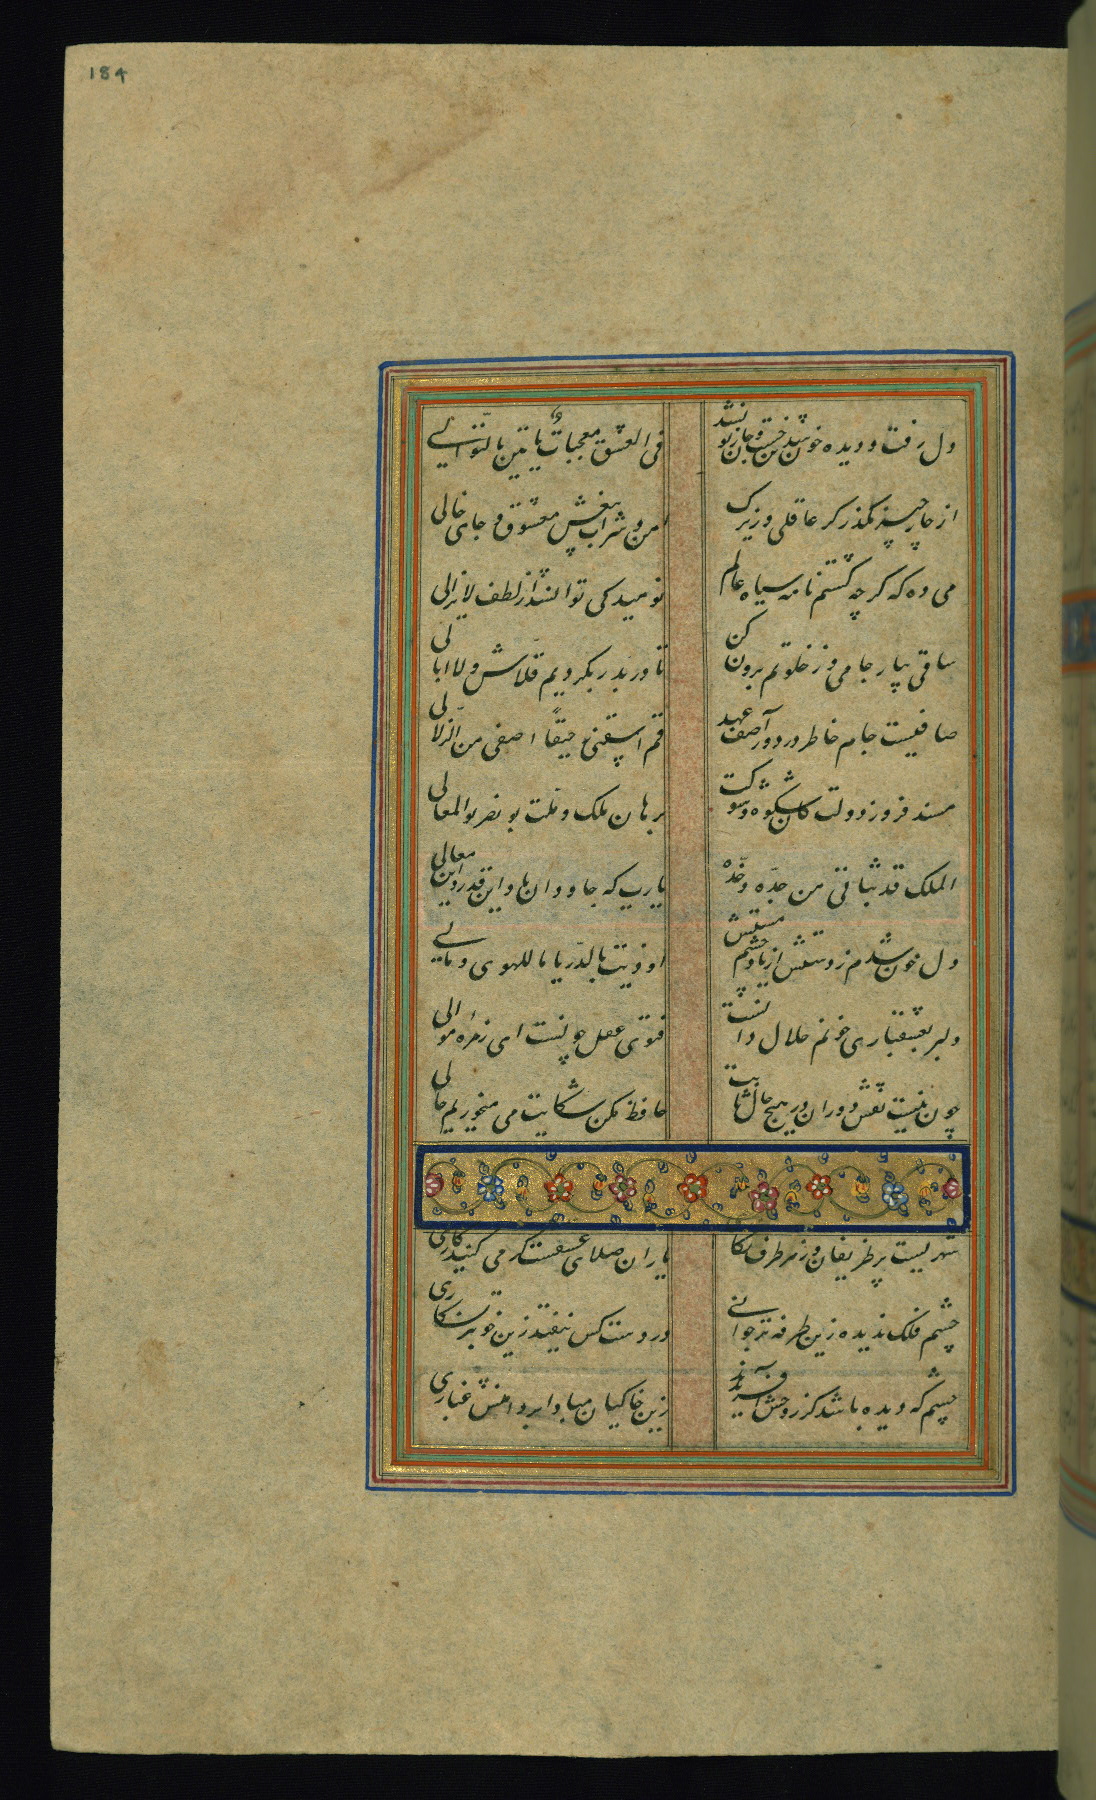 184
دل رفت و دیده خون شد تن خست و جان زبون شد
فی العشق معجبات یاتین بالتوالی
از چار چیز مگذر گر عاقلی و زیرک
امن و شراب بیغش معشوق و جای خالی
می ده که گرچه گشتم نامه سیاه عالم
نومید کی توان شد از لطف لایزالی
ساقی بیار جامی وز خلوتم برون کن
تا در بدر بگردیم قلاش و لاابالی
صافیست جام خاطر در دور آصف عهد
قم اسقنی رحیقاً اصفی من الزلالی
مسند فروز دولت کان شکوه و شوکت
برهان ملک و ملت بونصر بوالمعالی
الملک قد تباهی من جدّه و جدّه
یارب که جاودان باد این قدر و این معالی
دل خون شدم ز دستش از یاد چشم مستش
اوذیت بالرزایا ما للهوی و مالی
دلبر بعشقبازی خونم حلال دانست
فتوی عقل چونست ای زمرهٔ موالی
چون نیست نقش دوران در هیچ حال ثابت
حافظ مکن شکایت می میخوریم حالی
شهریست پر ظریفان وز هر طرف نگاری
یاران صلای عشقست گر می کنید کاری
چشم فلک ندیده زین طرفه تر جوانی
در دست کس نیفتد زین خوبتر نگاری
چشم که دیده باشد کز روحش آفریدند
زین خاکیان مبادا بر دامنش غباری